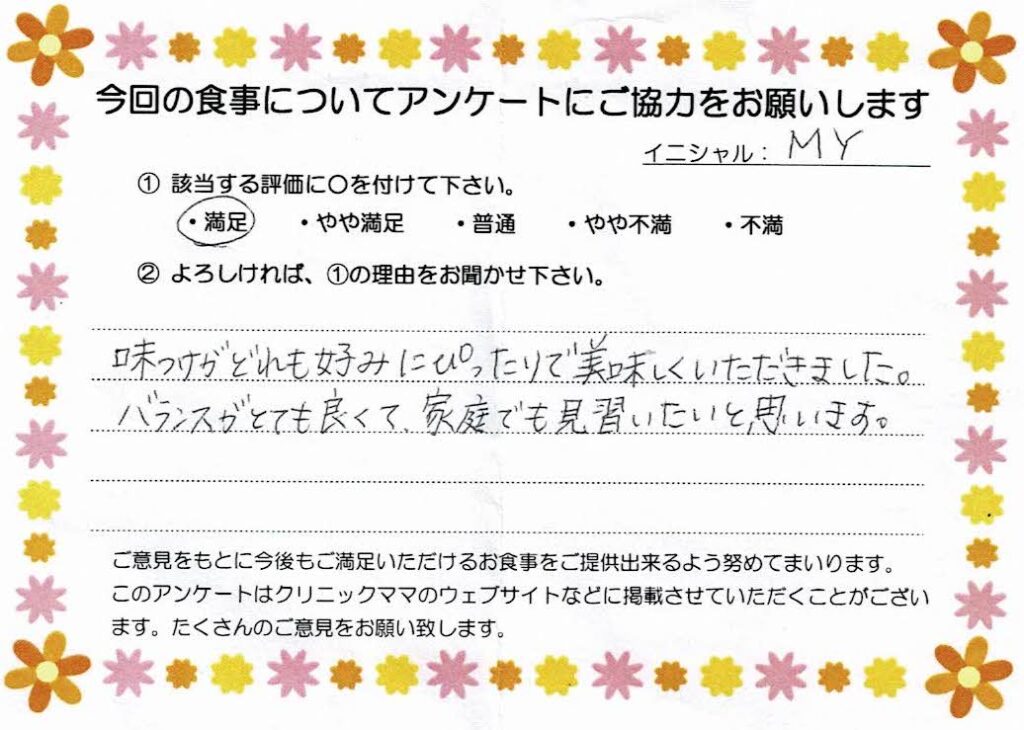 今回の食事についてアンケートにご協力をお願いします
イニシャル： MY
① 該当する評価に〇を付けて下さい。
・満足 ・やや満足 ・普通 ・やや不満 ・不満
② よろしければ、①の理由をお聞かせ下さい。
味つけがどれも好みにぴったりで美味しくいただきました。
バランスがとても良くて、家庭でも見習いたいと思います。
ご意見をもとに今後もご満足いただけるお食事をご提供出来るよう努めてまいります。
このアンケートはクリニックママのウェブサイトなどに掲載させていただくことがござい
ます。たくさんのご意見をお願い致します。